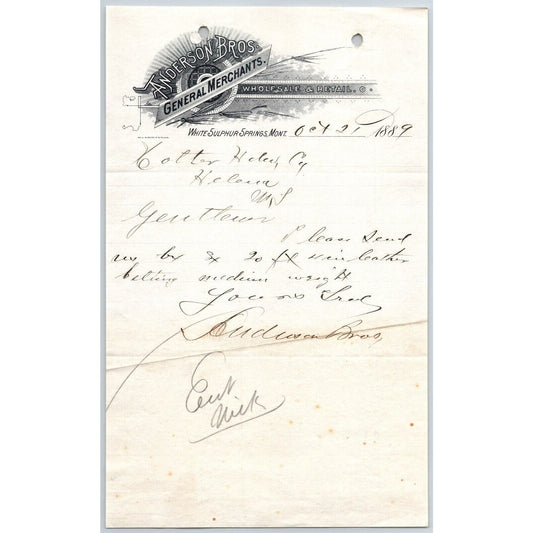 ANDERSON BROS.
GENERAL MERCHANTS.
WHOLESALE & RETAIL.
WHITE SULPHUR SPRINGS, MONT. Oct 21 1889
Holter Hdw Co
Helena
M,T
Gentlemen
Please send
us by 20 ft 4 in leather
belting medium weight
Yours Truly
Anderson Bros,